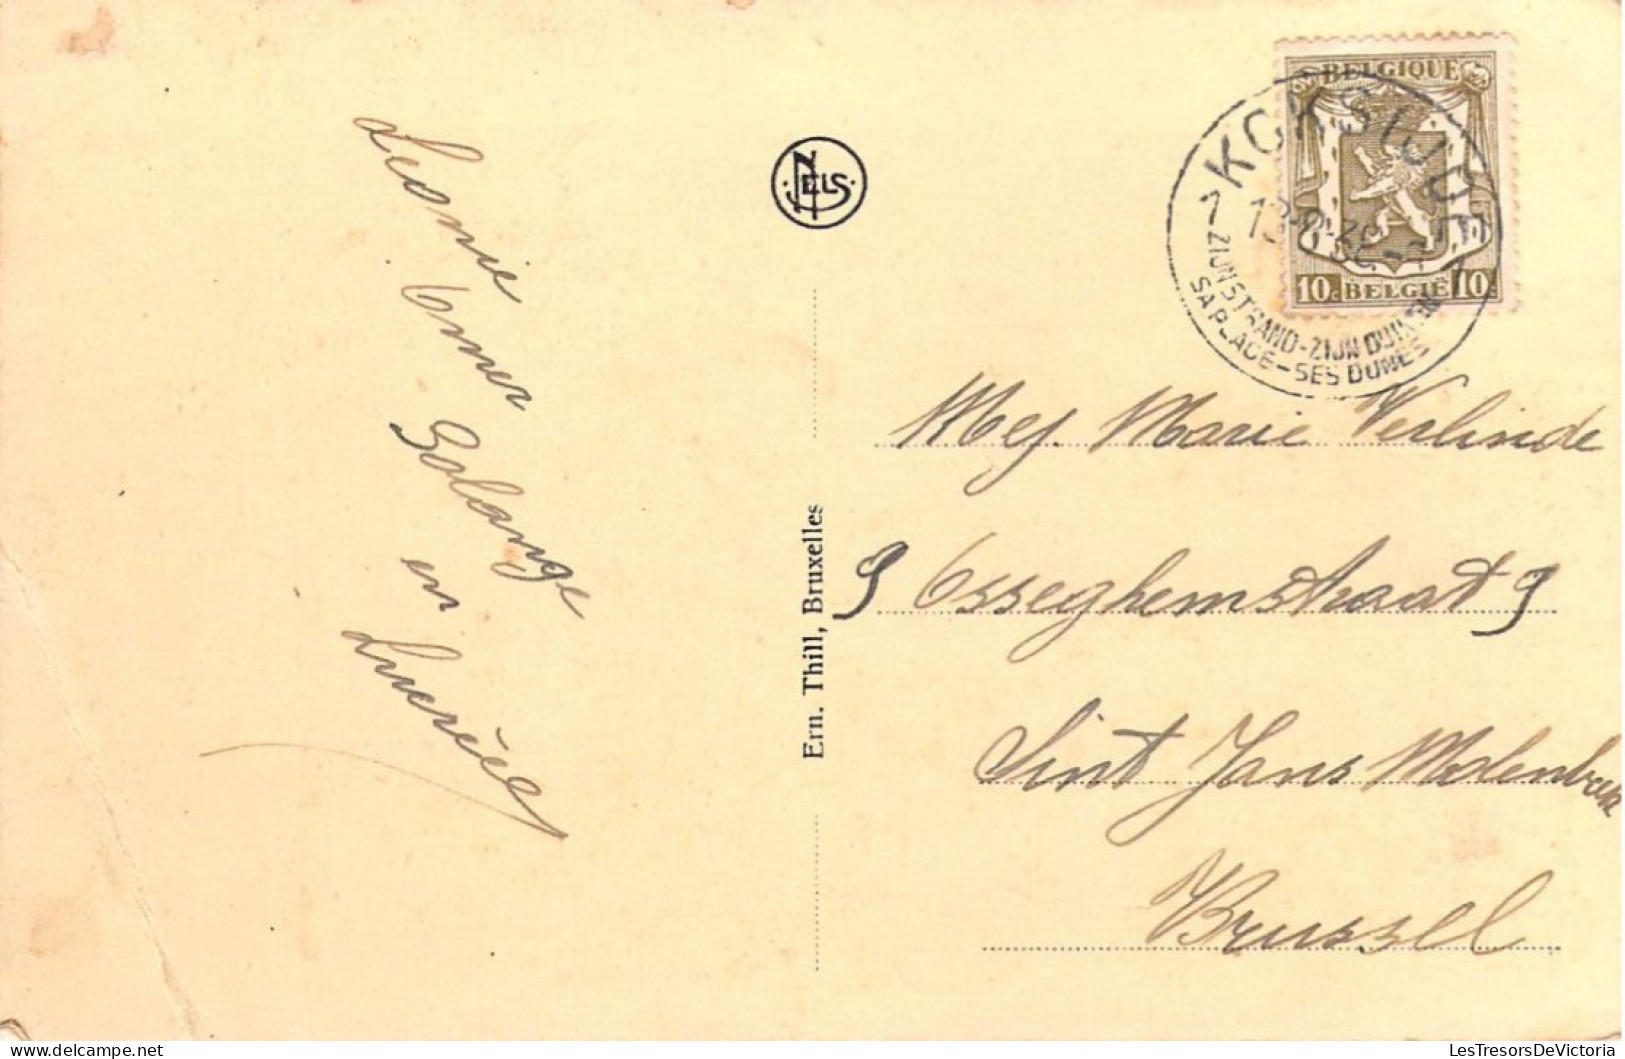 Leonie
Omer
Solange
en
NELS
Ern. Thill, Bruxelles
BELGIQUE
10c BELGIË 10c
KOKSIJDE
ZIJN STRAND - ZIJN DUINEN
SA PLAGE - SES DUNES
Mej. Marie Verlinde
9 Osseghemstraat 9
Sint Jans Molenbeek
Brussel
LesTresorsDeVictoria